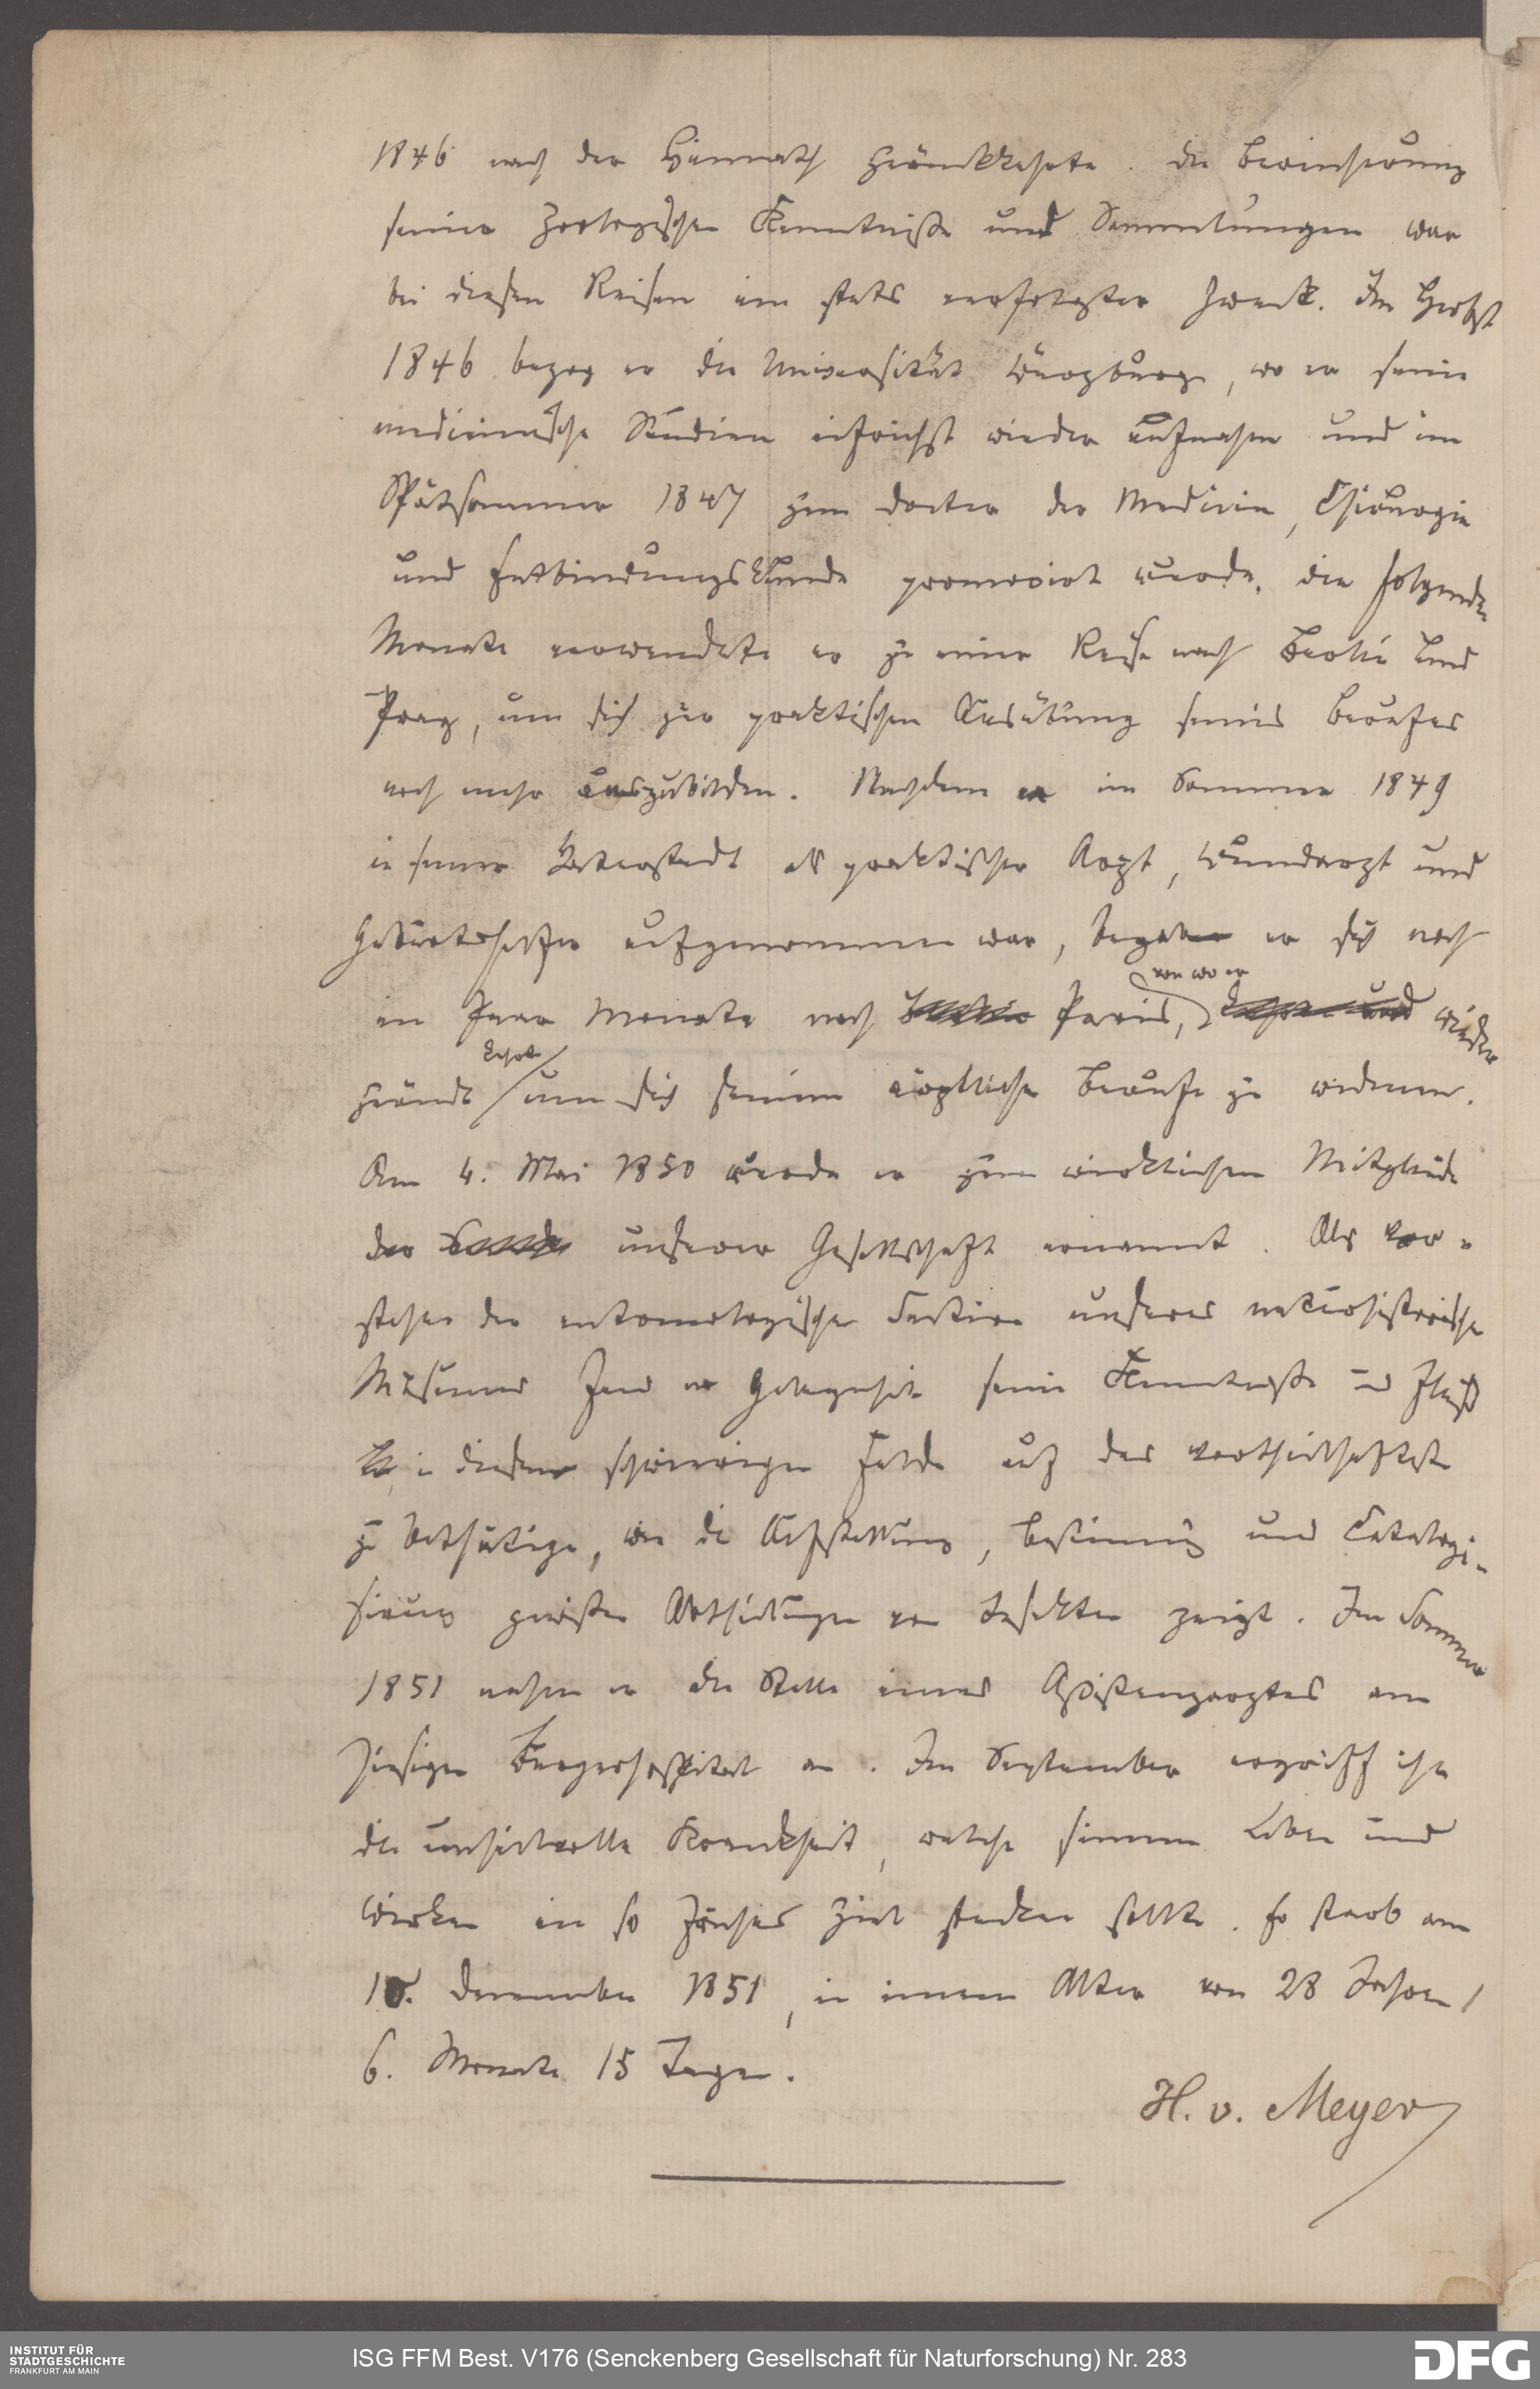 1846 nach der Heimath zurückkehrte. Die Bereicherung
seiner zoologischen Kenntniße und Sammlungen war
bei diesen Reisen ein stets verfolgter Zweck. Im Herbst
1846 bezog er die Universität Würzburg, wo er seine
medicinische Studien eifrichst wieder aufnahm und im
Spätsommer 1847 zum Doctor der Medicin, Chirurgie
und Entbindungskunde promovirt wurde. Die folgenden
Monate verwendete er zu einer Reise nach Berlin und
Prag, um sich zur praktischen Ausübung seines Berufes
noch mehr auszubilden. Nachdem er im Sommer 1849
in seiner Vaterstadt als praktischer Arzt, Wundarzt und
Geburtshelfer aufgenommen war, begab er sich noch
von wo er
ein Paar Monate nach Paris, wieder
kehrte
zurück um sich seinem ärztlichen Berufe zu widmen.
Am 4. Mai 1850 wurde er zum wirklichen Mitgliede
der unserer Gesellschaft ernannt. Als Vor-
steher der entomologischen Section unseres naturhistorischen
Museums fand er Gelegenheit seine Kenntniße und Fleiß
in diesem schwierigen Felde auf das vortheilhafteste
zu bethätigen, wie die Aufstellung, Bestimmung und Catalogi-
sirung gewisser Abtheilungen von Insekten zeigt. Im Sommer
1851 nahm er die Stelle eines Assistenzarztes am
hiesigen Bürgerhospital an. Im September ergriff ihn
die unheilvolle Krankheit, welche seinem Leben und
Wirken ein so frühes Ziel stecken sollte. Er starb am
10. December 1851, in einem Alter von 28 Jahren
6. Monate 15 Tagen.
H. v. Meyer
INSTITUT FÜR
STADTGESCHICHTE
FRANKFURT AM MAIN
ISG FFM Best. V176 (Senckenberg Gesellschaft für Naturforschung) Nr. 283
DFG